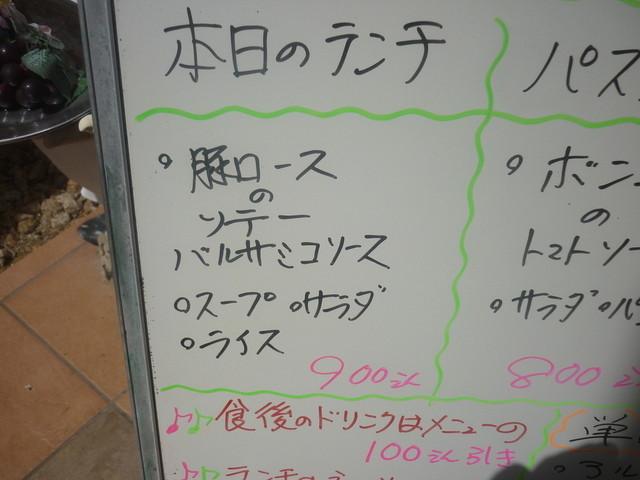 本日のランチ
・豚ロース
の
ソテー
バルサミコソース
・スープ ・サラダ
・ライス
900えん
パス
・ボン
の
トマトソー
・サラダ・パ
800え
♪♪食後のドリンクはメニューの
100えん引き
♪♪ランチ
単